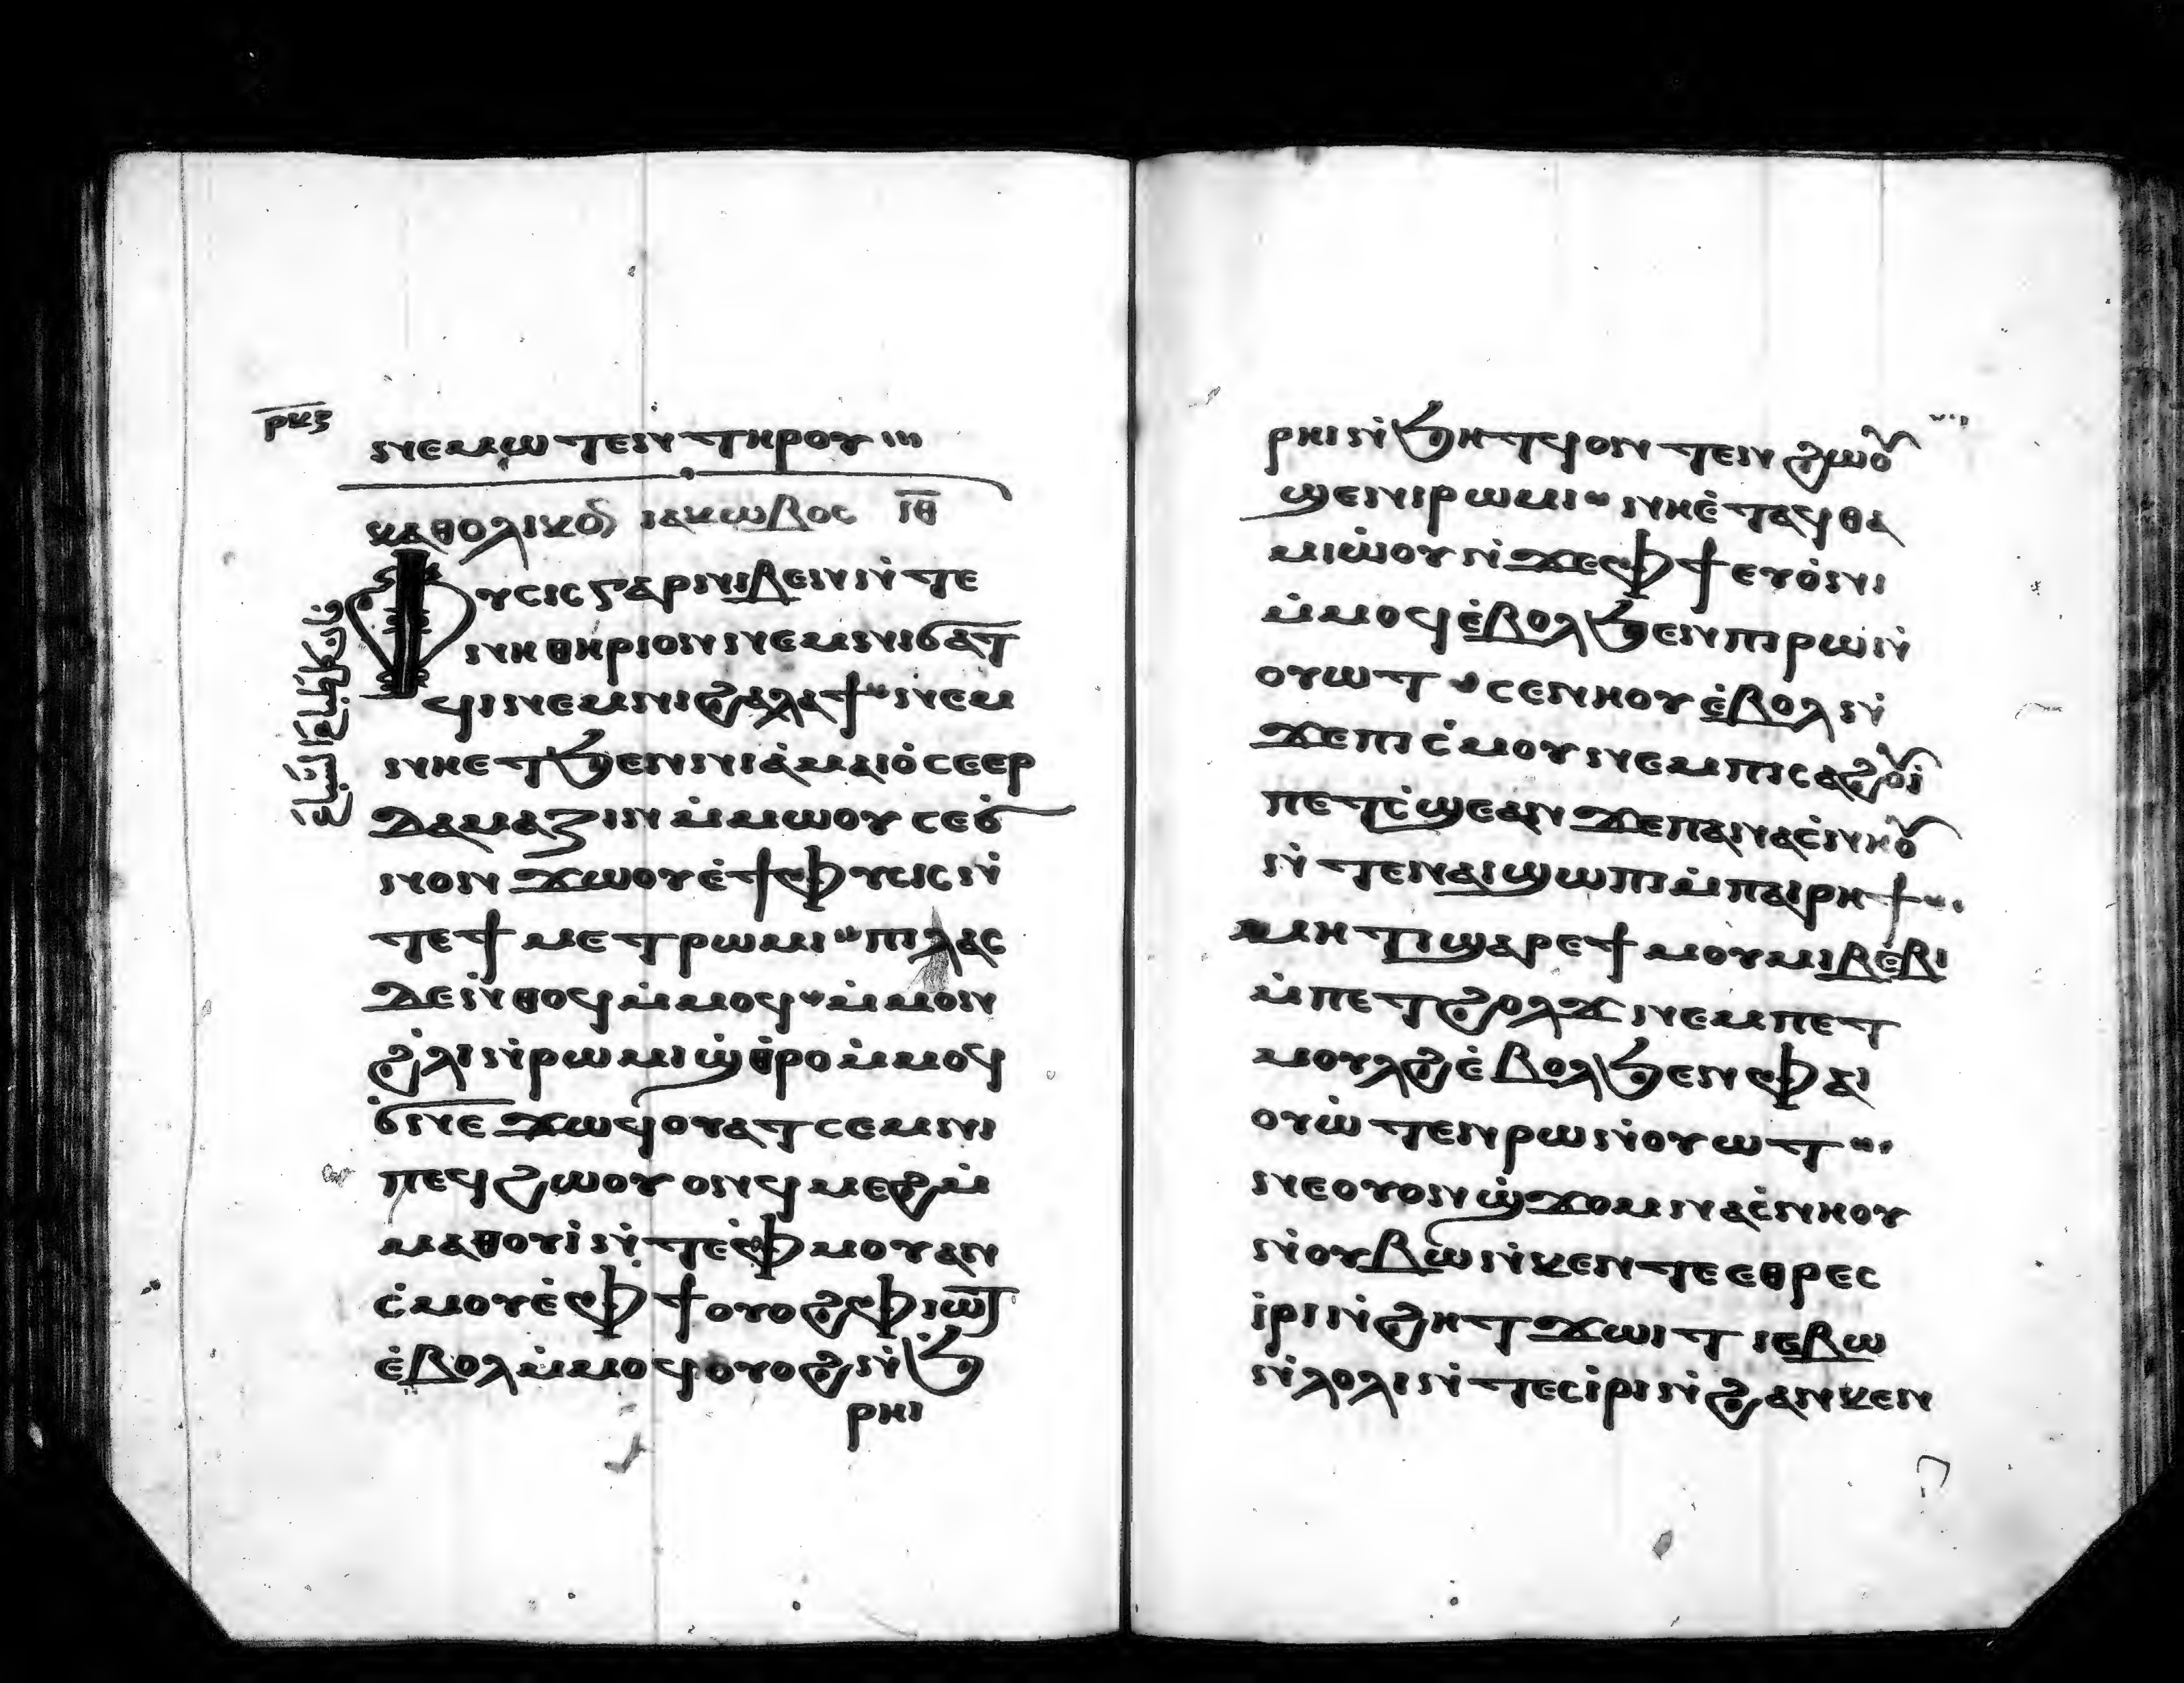 ⲣⲕⲋ
ⲛⲉⲙⲱⲧⲉⲛ ⲧⲏⲣⲟⲩ
ⲕⲁⲑⲟⲗⲓⲕⲟ ⲓⲁⲕⲱⲃⲟⲥ ⲓ̅ⲑ̅
ⲫⲩⲥⲓⲥ ⲅⲁⲣ ⲛⲓⲃⲉⲛ ⲛ̇ⲧⲉ
ⲛⲏⲑⲏⲣⲓⲟⲛ ⲛⲉⲙ ⲛⲓϭⲁⲧ
ϥⲓ ⲛⲉⲙ ⲛⲓϩⲁⲗⲁϯ ⲛⲉⲙ
ⲛⲏⲉⲧϧⲉⲛ ⲛⲓⲁ̇ⲙⲁⲓⲟ̇ ⲥⲉⲉⲣ
ⲇⲁⲙⲁⲍⲓⲛ ⲙ̇ⲙⲱⲟⲩ ⲥⲉϭ̇
ⲛⲟⲛ ϫⲱⲟⲩ ⲉ̇ϯⲫⲩⲥⲓⲥ ⲛ̇
ⲧⲉ ϯⲙⲉⲧⲣⲱⲙⲓ ⲡⲓⲗⲁⲥ
ⲇⲉ ⲛ̇ⲑⲟϥ ⲙ̇ⲙⲟϥ ⲙ̇ⲙⲟⲛ
ϩ̇ⲗⲓ ⲛ̇ⲣⲱⲙⲓ ϣ̇ⲑ̇ⲣⲟ ⲙ̇ⲙⲟϥ
ϭ̇ⲛⲉ ϫⲱϥ ⲟⲩⲁⲧⲥⲉⲙⲛⲓ
ⲡⲉϥϩⲱⲟⲩ ⲟⲛ ϥⲙⲉϩ ⲙ̇
ⲙⲁⲑⲟⲩⲓ̇ ⲛ̇ⲧⲉ ⲫ̇ⲙⲟⲩ ⲁⲛ
ⲥ̇ⲙⲟⲩ ⲉ̇ⲫϯ ⲟⲩⲟϩ ⲫⲓⲱⲧ
ⲉ̇ⲃⲟⲗ ⲙ̇ⲙⲟϥ ⲟⲩⲟϩ ⲛ̇ϧ̇
ⲣⲏⲓ
ⲣⲏⲓ ⲛ̇ϧⲏⲧϥ ⲟⲛ ⲧⲉⲛϩⲱⲟⲩ
ϣⲉ ⲛⲓⲣⲱⲙⲓ ⲛⲏⲉ̇ⲧⲁϥⲑⲁ
ⲙⲓⲱ̇ⲟⲩ ⲛ̇ϫⲉ ⲫϯ ⲉⲩⲟ̇ⲛⲓ
ⲙ̇ⲙⲟϥ ⲉ̇ⲃⲟⲗ ϧⲉⲛ ⲡⲓⲣⲱ ⲛ̇
ⲟⲩⲱⲧ ⲥⲉⲛⲏⲟⲩ ⲉ̇ⲃⲟⲗ ⲛ̇
ϫⲉ ⲡⲓⲥ̇ⲙⲟⲩ ⲛⲉⲙ ⲡⲓⲥⲁϩⲟⲩⲓ̇
ⲡⲉⲧⲥ̇ϣⲉ ⲁⲛ ϫⲉ ⲡⲁⲛⲁⲥ̇ⲛⲏⲟⲩ
ⲛ̇ⲧⲉ ⲛⲁⲓ ϣⲱⲡⲓ ⲙ̇ⲡⲁⲓⲣⲏϯ
ⲙⲏⲧⲓ ϣⲁⲣⲉ ϯⲙⲟⲩⲙⲓ ⲃⲉ̇ⲃⲓ
ⲙ̇ⲡⲉⲧϩⲟⲗϫ ⲛⲉⲙ ⲡⲉⲧ
ⲙⲟⲩⲗϩ ⲉ̇ⲃⲟⲗ ϧⲉⲛ ⲫⲁⲓ
ⲟⲩⲱ̇ⲧⲉⲛ ⲣⲱ ⲛ̇ⲟⲩⲱⲧ
ⲛⲉ ⲟⲩⲟⲛ ϣ̇ϫⲟⲙ ⲛⲁⲥ̇ⲛⲏⲟⲩ
ⲛ̇ⲟⲩⲃⲱ ⲛ̇ⲕⲉⲛⲧⲉ ⲉⲑⲣⲉⲥ
ⲓ̇ⲣⲓ ⲛ̇ϩⲏⲧ ϫⲱⲓⲧ ⲓⲉ ⲃⲱ
ⲛ̇ⲁⲗⲟⲗⲓ ⲛ̇ⲧⲉⲥⲓ̇ⲣⲓ ⲛ̇ϩⲁⲛⲕⲉⲛ